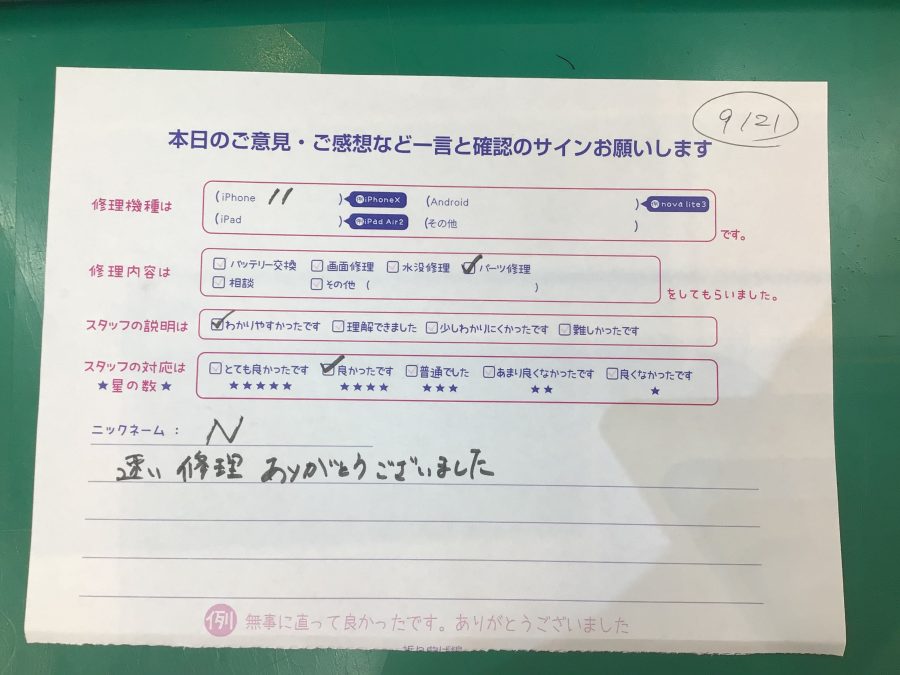 9/21
本日のご意見・ご感想など一言と確認のサインお願いします
修理機種は (iPhone 11 ) 例iPhoneX (Android ) 例nova lite3
(iPad ) 例iPad Air2 (その他 ) です。
修理内容は バッテリー交換 画面修理 水没修理 パーツ修理
相談 その他 ( ) をしてもらいました。
スタッフの説明は わかりやすかったです 理解できました 少しわかりにくかったです 難しかったです
スタッフの対応は とても良かったです 良かったです 普通でした あまり良くなかったです 良くなかったです
★星の数★ ★★★★★ ★★★★ ★★★ ★★ ★
ニックネーム: N
速い 修理 ありがとうございました
例 無事に直って良かったです。ありがとうございました